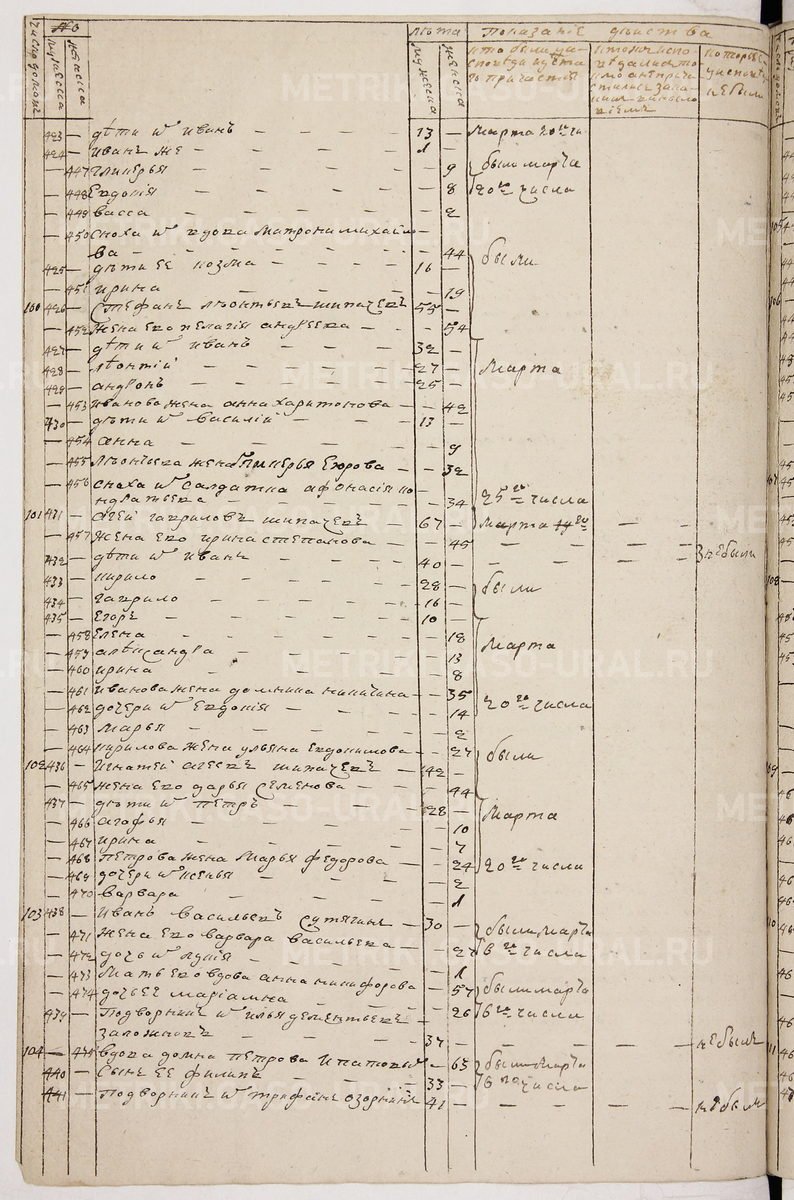 № лѣта Показанїе дѣиства
число домовъ мужеска женска мужеска женска
423 дѣти их Иванъ 13 Марта 20 го чи
424 Иванъ же 1
447 Гликерья 9 были марта
448 Евдокїя 8 20 го числа
449 Васса 2
450 Сноха их вдова Матрона Михаило
ва 44 были
425 дѣти ее Козма 16
451 Ирина 19
100 426 Стефанъ Леонтьевъ Шипачевъ 55
452 Жена ево Пелагїя Андрѣева 54
427 дѣти их Иванъ 32
428 Леонтїй 27 Марта
429 Андронъ 25
453 Иванова жена Анна Харитонова 42
430 дѣти их Василїй 13
454 Анна 9
455 Леонтьева жена Гликерья Егорова 32
456 Сноха их Солдатка Афонасїя Ко
ндратьева 34 25 го числа
101 431 Агей Гаврилов Шипачевъ 67 Марта 20
457 Жена ево Ирина Степанова 45
432 дѣти их Иванъ 40 не были
433 Кирило 28 были
434 Гаврило 16
435 Егоръ 10
458 Елена 18
459 Алеѯандра 13 Марта
460 Ирина 8
461 Иванова жена Домника Никитина 35
462 дочери их Евдокїя 14 20 го числа
463 Марья 2
464 Кирилова жена Ульяна Евдокимова 27 были
102 436 Игнатей Агеевъ Шипачевъ 42
465 Жена ево Дарья Семенова 44
437 дѣти их Петръ 28 Марта
466 Агафья 10
467 Ирина 7
468 Петрова жена Марья Федорова 24 20 го числа
469 дочери их Ксенья 2
470 Варвара 1
103 438 Иванъ Васильевъ Сутягинъ 30 были марта
471 Жена ево Варвара Васильева 27 6 го числа
472 дочь их Лукїя 1
473 Мать ево вдова Анна Никифорова 57 были марта
474 дочь ее Марїамна 26 6 го числа
439 Подворник их Илья Дементьевъ
Заложновъ 37 не былъ
104 475 вдова Домна Петрова Ипатовы 63 были марта
440 Сынъ ее Филипъ 33 6 го числа
441 Подворник их Трифанъ Озорнинъ 41 не былъ
METRIKI.RGSO-URAL.RU